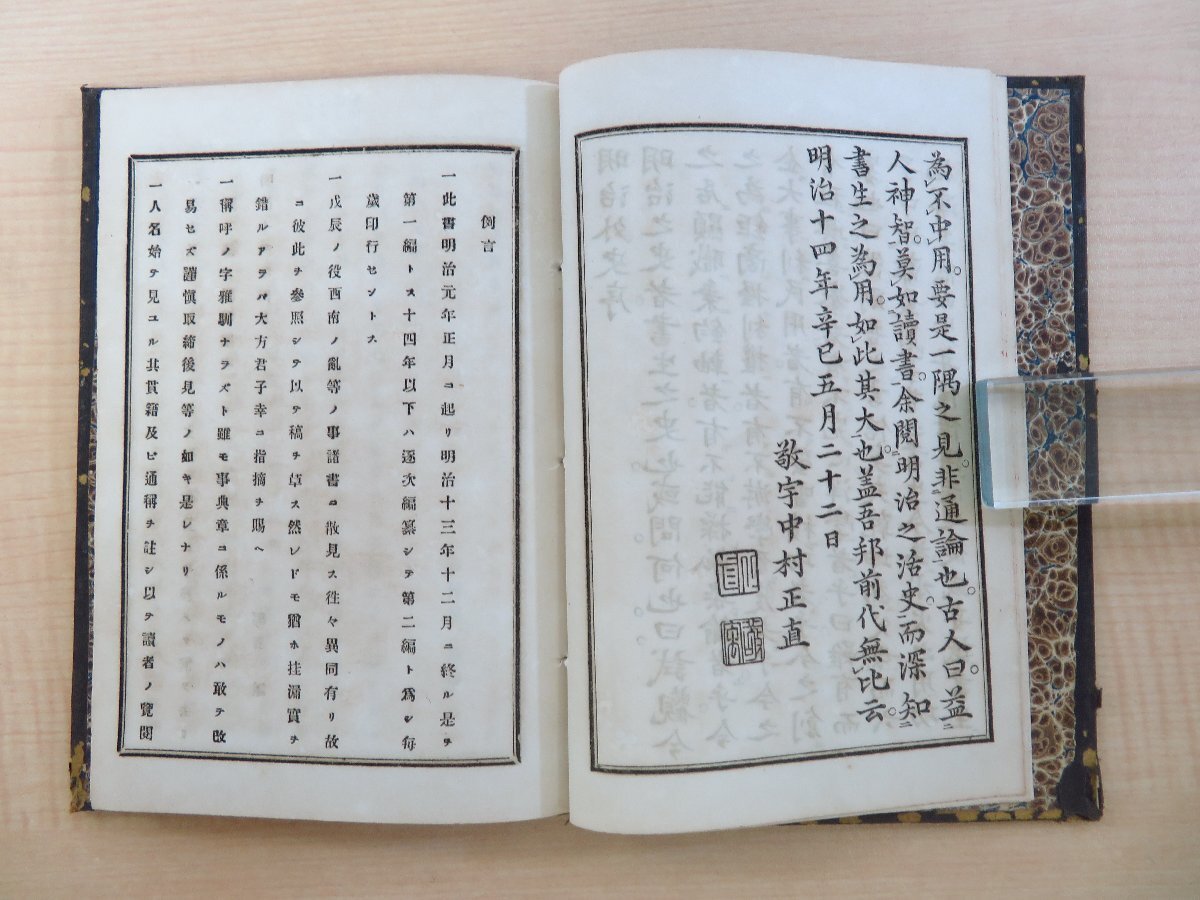 為不中用。要是一隅之見。非通論也。古人曰。益
人神智。莫如讀書。余閱明治之活史。而深知
書生之為用。如此其大也。蓋吾邦前代無比云。
明治十四年辛巳五月二十二日
敬宇中村正直
例言
一此書明治元年正月ニ起リ明治十三年十二月ニ終ル是ヲ
第一編トス十四年以下ハ逐次編纂シテ第二編ト爲シ每
歲印行セントス
一戊辰ノ役西南ノ亂等ノ事諸書ニ散見ス往々異同有リ故
ニ彼此ヲ參照シテ以テ稿ヲ草ス然レドモ猶ホ挂漏實ヲ
錯ルアラバ大方君子幸ニ指摘ヲ賜ヘ
一稱呼ノ字雅馴ナラズト雖モ事典章ニ係ルモノハ敢テ改
易セズ謹愼取締後見等ノ如キ是レナリ
一人名始テ見ユル其貫籍及ビ通稱ヲ註シ以テ讀者ノ覽閱